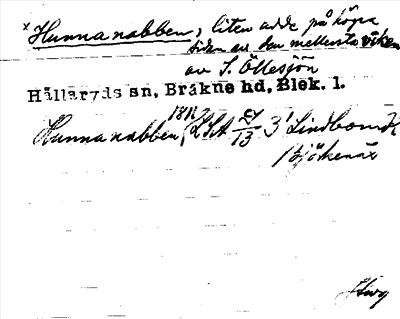 x Hunnanabben, liten udde på högra
sidan av den mellersta viken
av S. Öllesjön
Hällaryds sn, Bräkne hd, Blek. l.
Hunnanabben, 1817 LSA 3 Lindbom
Björkenäs